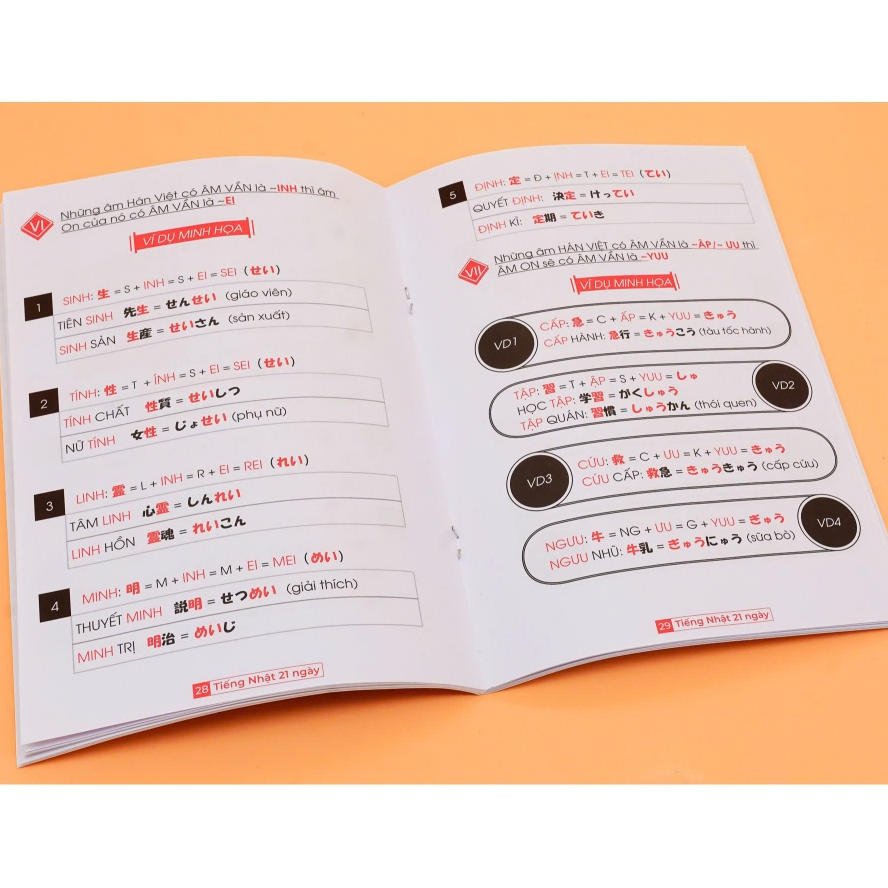 VI
Những âm Hán Việt có ÂM VẦN là ~INH thì âm
On của nó có ÂM VẦN là ~EI
VÍ DỤ MINH HỌA
1
SINH: 生 = S + INH = S + EI = SEI (せい)
TIÊN SINH 先生 = せんせい (giáo viên)
SINH SẢN 生産 = せいさん (sản xuất)
2
TÍNH: 性 = T + ÍNH = S + EI = SEI (せい)
TÍNH CHẤT 性質 = せいしつ
NỮ TÍNH 女性 = じょせい (phụ nữ)
3
LINH: 霊 = L + INH = R + EI = REI (れい)
TÂM LINH 心霊 = しんれい
LINH HỒN 霊魂 = れいこん
4
MINH: 明 = M + INH = M + EI = MEI (めい)
THUYẾT MINH 説明 = せつめい (giải thích)
MINH TRỊ 明治 = めいじ
28 Tiếng Nhật 21 ngày
5
ĐỊNH: 定 = Đ + ỊNH = T + EI = TEI (てい)
QUYẾT ĐỊNH: 決定 = けってい
ĐỊNH KÌ: 定期 = ていき
VII
Những âm HÁN VIỆT có ÂM VẦN là ~ÂP/~ ƯU thì
ÂM ON sẽ có ÂM VẦN là ~YUU
VÍ DỤ MINH HỌA
VD1
CẤP: 急 = C + ẤP = K + YUU = きゅう
CẤP HÀNH: 急行 = きゅうこう (tàu tốc hành)
VD2
TẬP: 習 = T + ẬP = S + YUU = しゅ
HỌC TẬP: 学習 = がくしゅう
TẬP QUÁN: 習慣 = しゅうかん (thói quen)
VD3
CỨU: 救 = C + ƯU = K + YUU = きゅう
CỨU CẤP: 救急 = きゅうきゅう (cấp cứu)
VD4
NGƯU: 牛 = NG + ƯU = G + YUU = ぎゅう
NGƯU NHŨ: 牛乳 = ぎゅうにゅう (sữa bò)
29 Tiếng Nhật 21 ngày